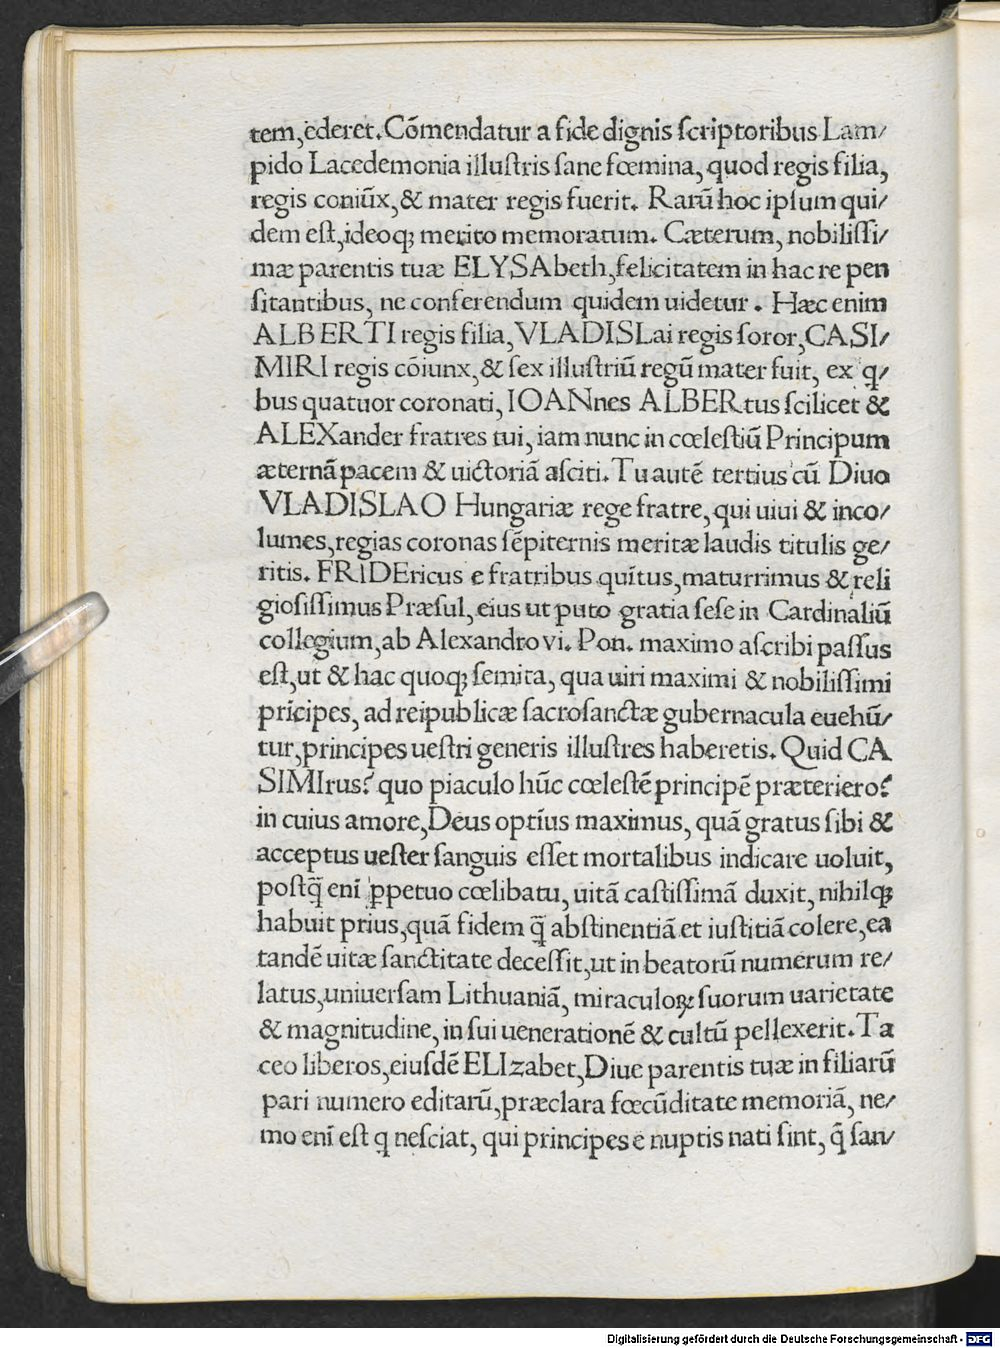 tem, ederet. Cõmendatur a fide dignis ſcriptoribus Lam/
pido Lacedemonia illuſtris ſane fœmina, quod regis filia,
regis coniũx, & mater regis fuerit. Rarũ hoc ipſum qui/
dem eſt, ideoqꝫ merito memoratum. Cæterum, nobiliſſi/
mæ parentis tuæ ELYSAbeth, felicitatem in hac re pen
ſitantibus, ne conferendum quidem uidetur. Hæc enim
ALBERTI regis filia, VLADISLai regis ſoror, CASI/
MIRI regis cõiunx, & ſex illuſtriũ regũ mater fuit, ex q/
bus quatuor coronati, IOANnes ALBERtus ſcilicet &
ALEXander fratres tui, iam nunc in cœleſtiũ Principum
æternã pacem & uictoriã aſciti. Tu autẽ tertius cũ Diuo
VLADISLAO Hungariæ rege fratre, qui uiui & inco/
lumes, regias coronas ſẽpiternis meritæ laudis titulis ge/
ritis. FRIDEricus e fratribus quĩtus, maturrimus & reli
gioſiſſimus Præſul, eius ut puto gratia ſeſe in Cardinaliũ
collegium, ab Alexandro vi. Pon. maximo aſcribi paſſus
eſt, ut & hac quoqꝫ ſemita, qua uiri maximi & nobiliſſimi
prĩcipes, ad reipublicæ ſacroſanctæ gubernacula euehũ/
tur, principes ueſtri generis illuſtres haberetis. Quid CA
SIMIrus? quo piaculo hũc cœleſtẽ principẽ præteriero?
in cuius amore, Deus optĩus maximus, quã gratus ſibi &
acceptus ueſter ſanguis eſſet mortalibus indicare uoluit,
poſtq̃ enĩ ꝑpetuo cœlibatu, uitã caſtiſſimã duxit, nihilqꝫ
habuit prius, quã fidem q̃ abſtinentiã et iuſtitiã colere, ea
tandẽ uitæ ſanctitate deceſſit, ut in beatorũ numerum re/
latus, uniuerſam Lithuaniã, miraculoꝝ ſuorum uarietate
& magnitudine, in ſui uenerationẽ & cultũ pellexerit. Ta
ceo liberos, eiuſdẽ ELIzabet, Diue parentis tuæ in filiarũ
pari numero editarũ, præclara fœcũditate memoriã, ne/
mo enĩ eſt q neſciat, qui principes e nuptis nati ſint, q̃ ſan/
Digitalisierung gefördert durch die Deutsche Forschungsgemeinschaft - DFG